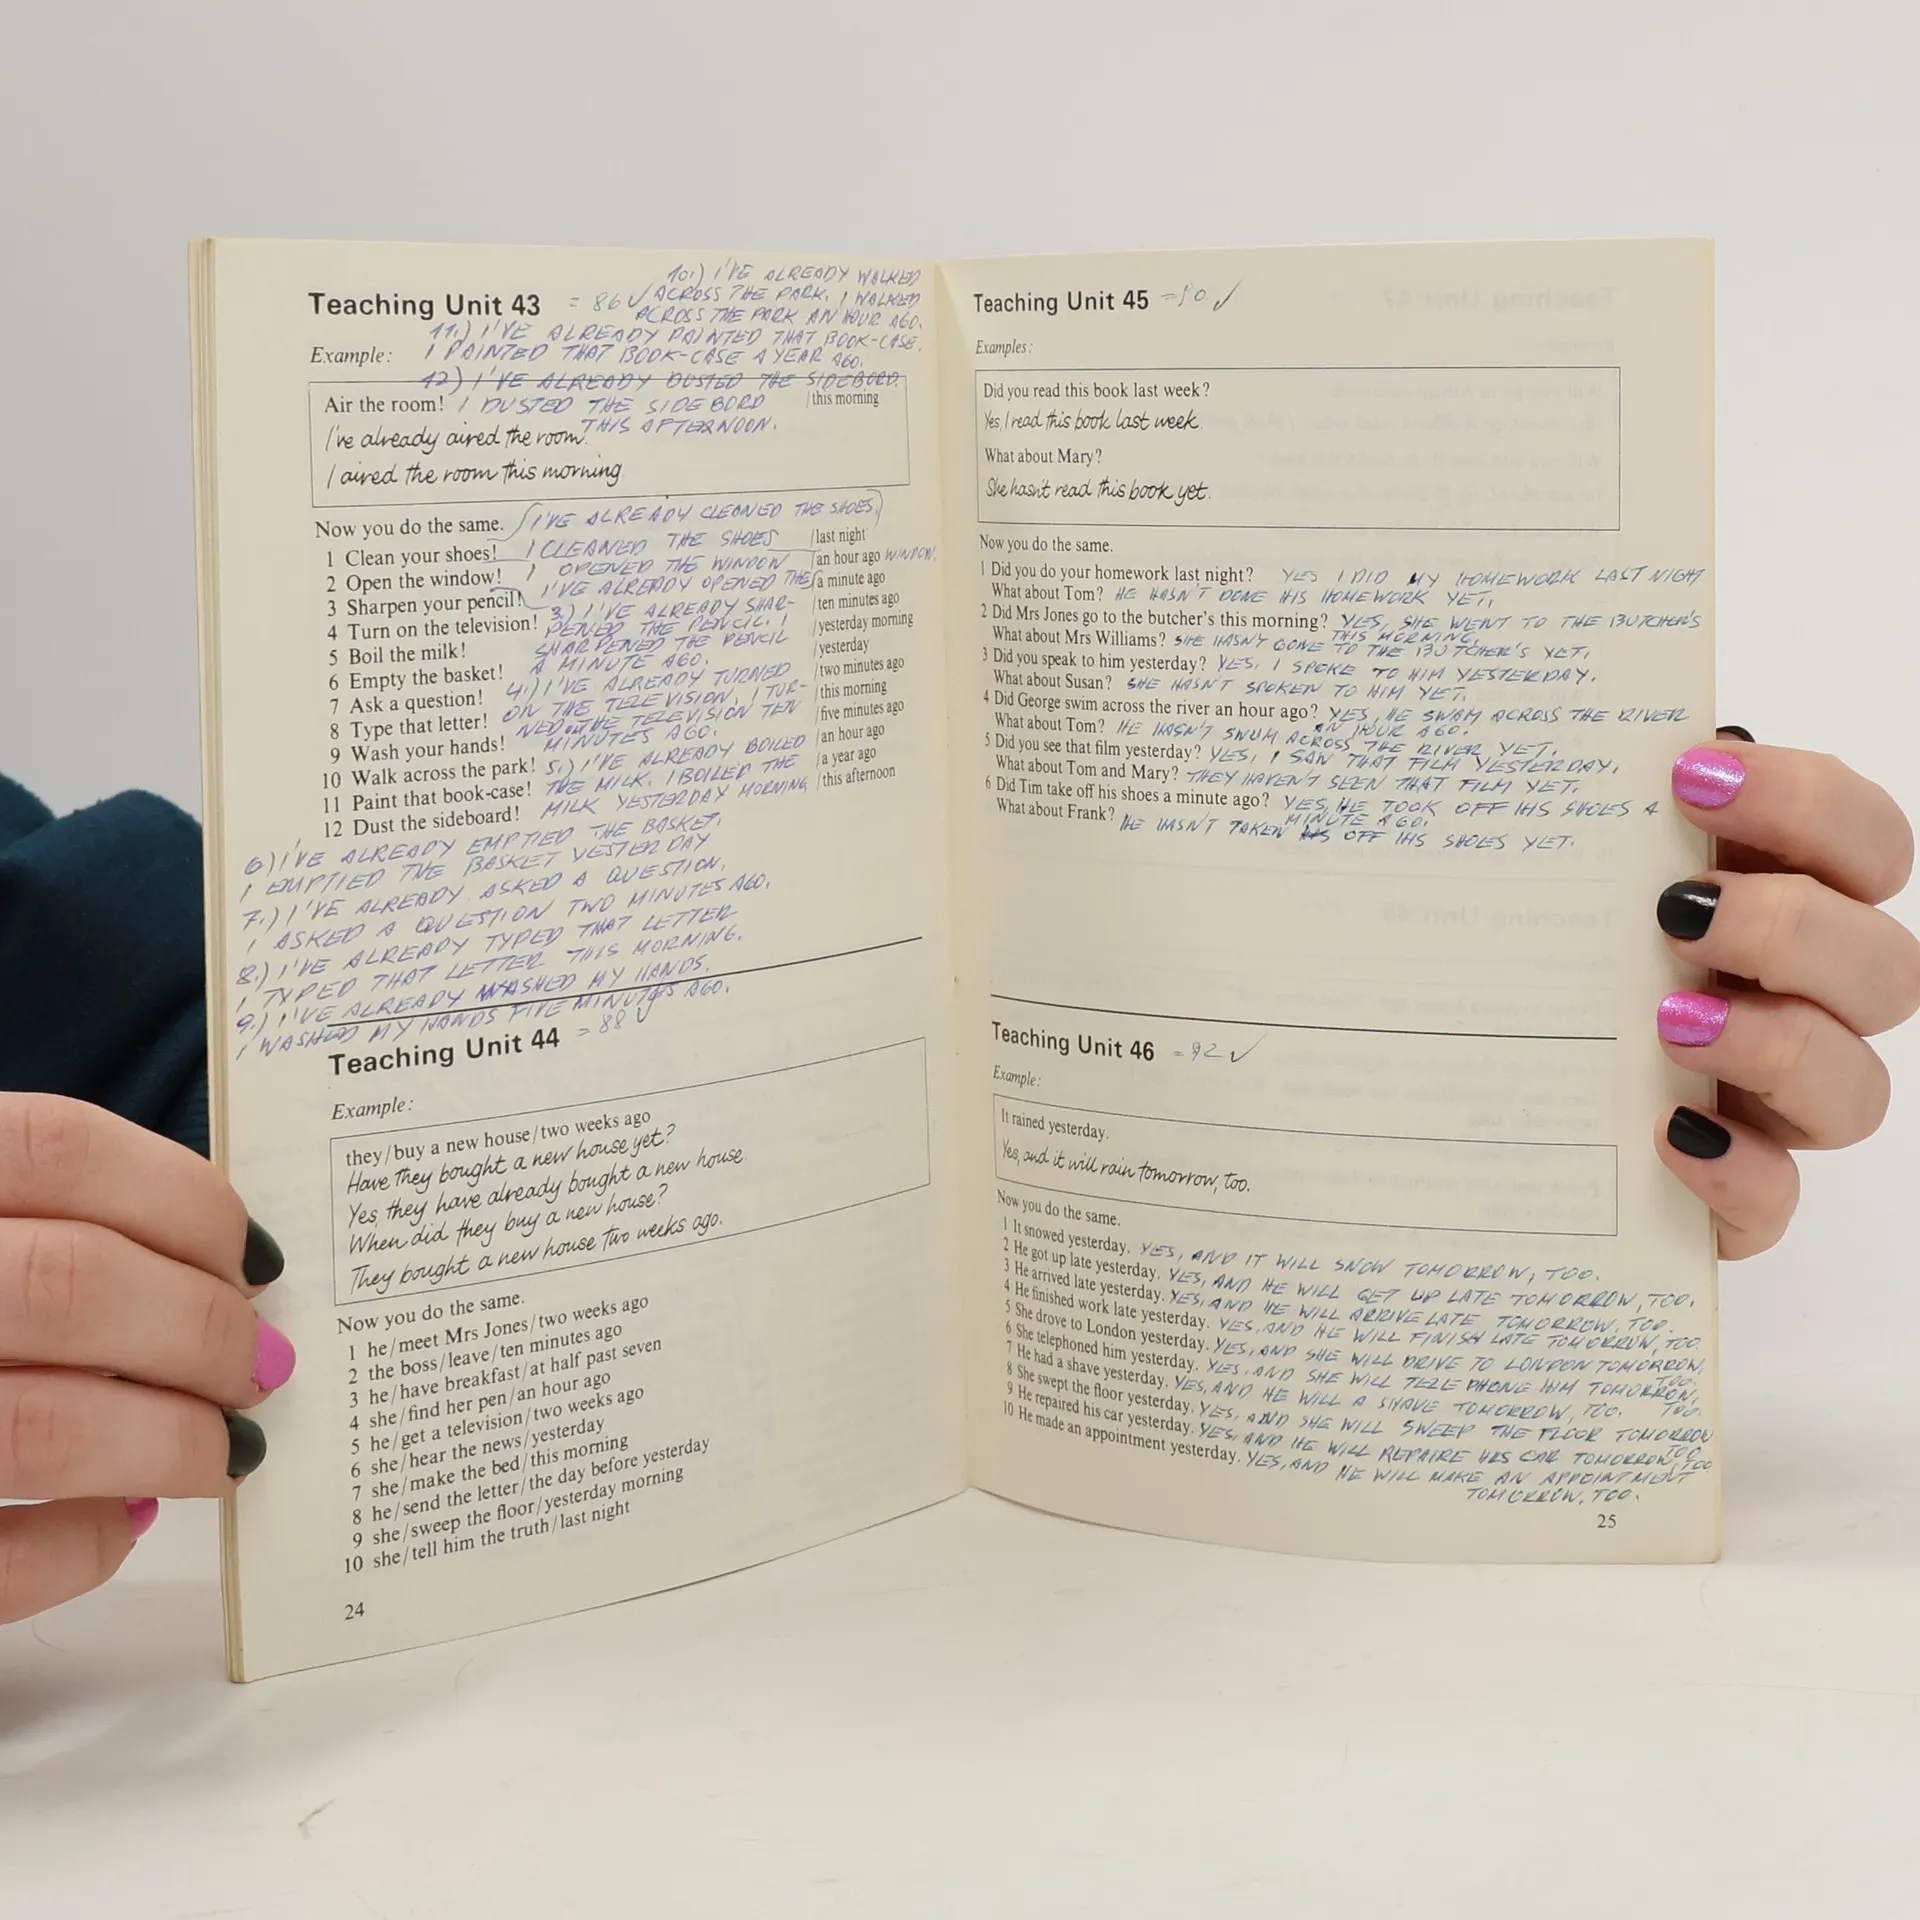 10.) I'VE ALREADY WALKED
Teaching Unit 43 = 86 ✓ ACROSS THE PARK. I WALKED
ACROSS THE PARK AN HOUR AGO.
11.) I'VE ALREADY PAINTED THAT BOOK-CASE.
Example: I PAINTED THAT BOOK-CASE A YEAR AGO.
12) I'VE ALREADY DUSTED THE SIDEBORD.
Air the room! I DUSTED THE SIDEBORD /this morning
THIS AFTERNOON.
I've already aired the room.
I aired the room this morning.
Now you do the same. I'VE ALREADY CLEANED THE SHOES.
1 Clean your shoes! I CLEANED THE SHOES /last night
2 Open the window! I OPENED THE WINDOW /an hour ago WINDOW.
I'VE ALREADY OPENED THE
3 Sharpen your pencil! /a minute ago
4 Turn on the television! /ten minutes ago
5 Boil the milk! /yesterday morning
6 Empty the basket! /yesterday
7 Ask a question! /two minutes ago
8 Type that letter! /this morning
9 Wash your hands! /five minutes ago
10 Walk across the park! /an hour ago
11 Paint that book-case! /a year ago
12 Dust the sideboard! /this afternoon
3.) I'VE ALREADY SHAR-
PENED THE PENCIL. I
SHARPENED THE PENCIL
A MINUTE AGO.
4.) I'VE ALREADY TURNED
ON THE TELEVISION. I TUR-
NED ON THE TELEVISION TEN
MINUTES AGO.
5.) I'VE ALREADY BOILED
THE MILK. I BOILED THE
MILK YESTERDAY MORNING
6) I'VE ALREADY EMPTIED THE BASKET.
I EMPTIED THE BASKET YESTERDAY
7.) I'VE ALREADY ASKED A QUESTION.
I ASKED A QUESTION TWO MINUTES AGO.
8.) I'VE ALREADY TYPED THAT LETTER
I TYPED THAT LETTER THIS MORNING.
9.) I'VE ALREADY WASHED MY HANDS.
I WASHED MY HANDS FIVE MINUTES AGO.
Teaching Unit 44 = 88 ✓
Example:
they/buy a new house/two weeks ago
Have they bought a new house yet?
Yes, they have already bought a new house.
When did they buy a new house?
They bought a new house two weeks ago.
Now you do the same.
1 he/meet Mrs Jones/two weeks ago
2 the boss/leave/ten minutes ago
3 he/have breakfast/at half past seven
4 she/find her pen/an hour ago
5 he/get a television/two weeks ago
6 she/hear the news/yesterday
7 she/make the bed/this morning
8 he/send the letter/the day before yesterday
9 she/sweep the floor/yesterday morning
10 she/tell him the truth/last night
24
Teaching Unit 45 =90 ✓
Examples:
Did you read this book last week?
Yes, I read this book last week.
What about Mary?
She hasn't read this book yet.
Now you do the same.
1 Did you do your homework last night? YES I DID MY HOMEWORK LAST NIGHT
What about Tom? HE HASN'T DONE HIS HOMEWORK YET.
2 Did Mrs Jones go to the butcher's this morning? YES, SHE WENT TO THE BUTCHER'S
THIS MORNING.
What about Mrs Williams? SHE HASN'T GONE TO THE BUTCHER'S YET.
3 Did you speak to him yesterday? YES, I SPOKE TO HIM YESTERDAY.
What about Susan? SHE HASN'T SPOKEN TO HIM YET.
4 Did George swim across the river an hour ago? YES, HE SWAM ACROSS THE RIVER
AN HOUR AGO.
What about Tom? HE HASN'T SWUM ACROSS THE RIVER YET.
5 Did you see that film yesterday? YES, I SAW THAT FILM YESTERDAY.
What about Tom and Mary? THEY HAVEN'T SEEN THAT FILM YET.
6 Did Tim take off his shoes a minute ago? YES, HE TOOK OFF HIS SHOES A
MINUTE AGO.
What about Frank? HE HASN'T TAKEN OFF HIS SHOES YET.
Teaching Unit 46 =92 ✓
Example:
It rained yesterday.
Yes, and it will rain tomorrow, too.
Now you do the same.
1 It snowed yesterday. YES, AND IT WILL SNOW TOMORROW, TOO.
2 He got up late yesterday. YES, AND HE WILL GET UP LATE TOMORROW, TOO.
3 He arrived late yesterday. YES, AND HE WILL ARRIVE LATE TOMORROW, TOO.
4 He finished work late yesterday. YES, AND HE WILL FINISH LATE TOMORROW, TOO.
5 She drove to London yesterday. YES, AND SHE WILL DRIVE TO LONDON TOMORROW,
TOO.
6 She telephoned him yesterday. YES, AND SHE WILL TELEPHONE HIM TOMORROW,
TOO.
7 He had a shave yesterday. YES, AND HE WILL A SHAVE TOMORROW, TOO.
8 She swept the floor yesterday. YES, AND SHE WILL SWEEP THE FLOOR TOMORROW
TOO
9 He repaired his car yesterday. YES, AND HE WILL REPAIRE HIS CAR TOMORROW, TOO
10 He made an appointment yesterday. YES, AND HE WILL MAKE AN APPOINTMENT
TOMORROW, TOO.
25